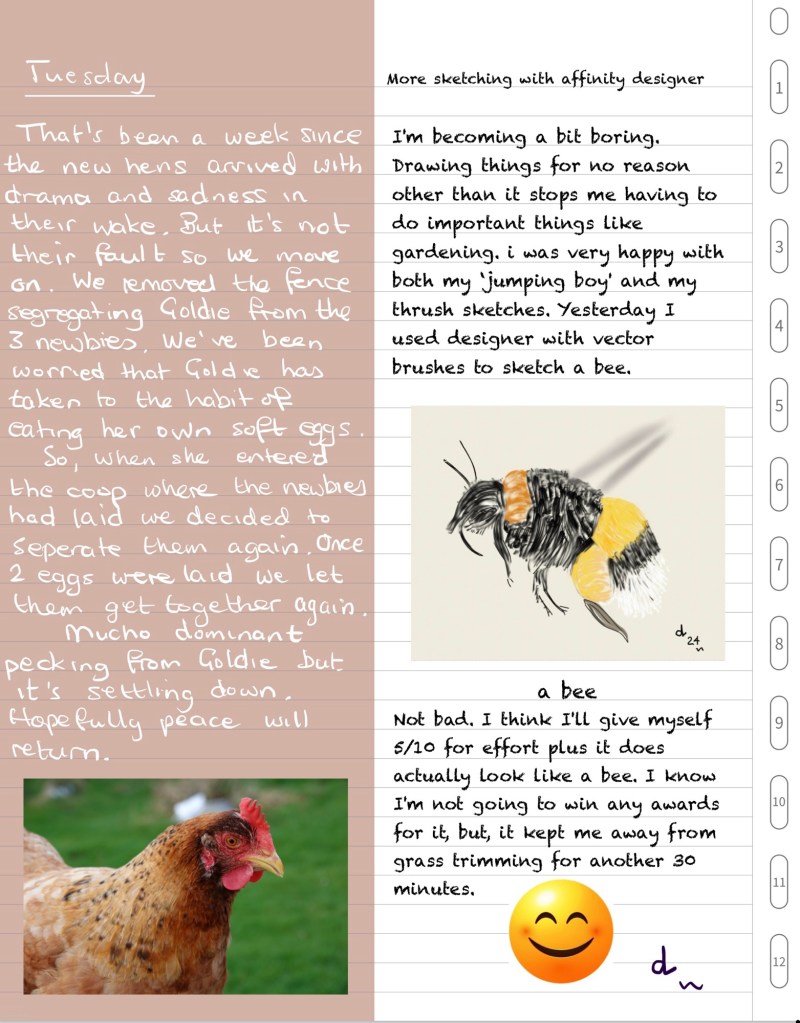 Tuesday
That's been a week since
the new hens arrived with
drama and sadness in
their wake. But it's not
their fault so we move
on. We removed the fence
segregating Goldie from the
3 newbies. We've been
worried that Goldie has
taken to the habit of
eating her own soft eggs.
So, when she entered
the coop where the newbies
had laid we decided to
seperate them again. Once
2 eggs were laid we let
them get together again.
Mucho dominant
pecking from Goldie but
it's settling down.
Hopefully peace will
return.
More sketching with affinity designer
I'm becoming a bit boring.
Drawing things for no reason
other than it stops me having to
do important things like
gardening. i was very happy with
both my 'jumping boy' and my
thrush sketches. Yesterday I
used designer with vector
brushes to sketch a bee.
d 24
a bee
Not bad. I think I'll give myself
5/10 for effort plus it does
actually look like a bee. I know
I'm not going to win any awards
for it, but, it kept me away from
grass trimming for another 30
minutes.
d
1
2
3
4
5
6
7
8
9
10
11
12